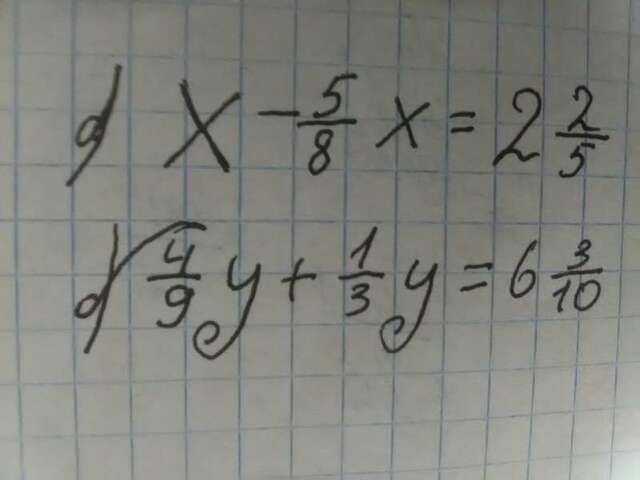 а) x - 5/8 x = 2 2/5
б) 4/9 y + 1/3 y = 6 3/10